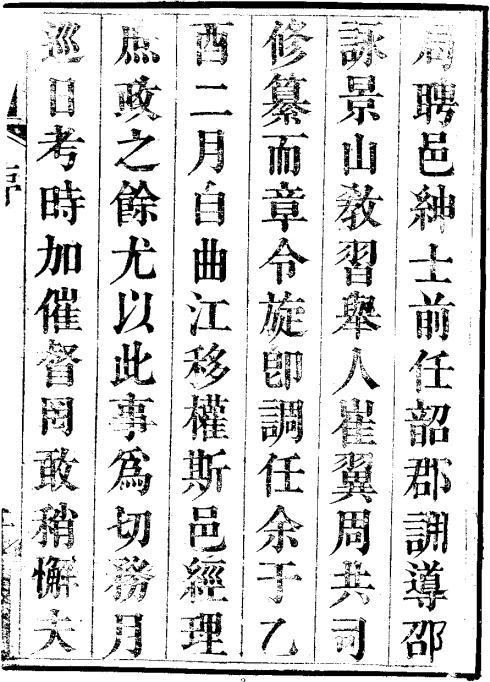 局聘邑紳士前任韶郡訓導邵
詠景山教習舉人崔翼周共司
修纂而章令旋卽調任余于乙
酉二月自曲江移權斯邑經理
庶政之餘尤以此事爲切務月
巡日考時加催督罔敢稍懈夫